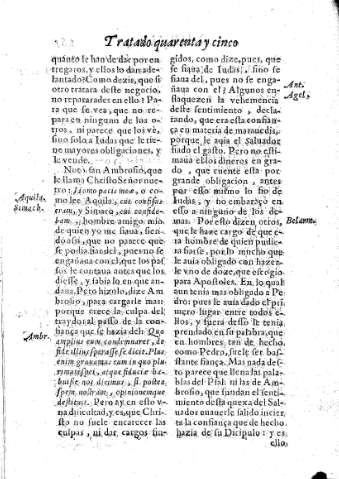 Tratado quarenta y cinco
quánto le han de dar por en-
tregaros, y ellos lo dan ade-
lantado? Como dezis, que si
otro tratara deste negocio,
no reparárades en ello? Pa-
ra que se vea, que no re-
para en ninguno de los o-
tros, ni parece que los vè,
sino solo a Iudas que le tie-
ne mayores obligaciones, y
le vende.
Notó san Ambrosio, que
le llama Christo Señor nues-
tro: Homo pacis meæ, o co-
mo lee Aquila, cui confisus
eram, y Simaco, cui confide-
bam, hombre amigo mio,
de quien yo me fiaua, sien-
do assi, que no parece que
se podia fiar del, pues no se en-
gañaua con el, que los pas-
sos le contaua antes que los
diesse, y sabia lo en que an-
daua. Pero hizolo, dize Am-
brosio, para cargarle mas:
porque crece la culpa del
traydor al passo de la con-
fiança que se hazia del: Quo
amplius eum condemnaret, de
fide illius sparasse se dicit. Ple-
enim grauamur cum in quo plu-
rimum spei, atque fiduciæ ha-
buisse nos dicimus, is postea,
spem nostram, opinionemque
destituit. Pero ay en esto v-
na dificultad, y es, que Chri-
sto no suele encarecer las
culpas, ni dar cargos fin-
gidos, como dize, pues, que
se fiaua de Iudas, sino se
fiaua del, pues no se enga-
ñaua con el? Algunos en-
flaquezen la vehemencia
deste sentimiento, decla-
rando, que era esta confian-
ça en materia de maraudis,
porque le auia el Saluador
fiado el gasto. Pero no esti-
maua el los dineros en gra-
do, que cuente esta por
grande obligacion, antes
por esso mismo lo fio de
Iudas, y no embarçò en
esso a ninguno de los de-
mas. Por esto dizen otros,
que le haze cargo de que e-
ra hombre de quien pudie-
ra fiarse, por lo mucho que
le auia obligado con hazer-
le vno de doze, que escogio
para Apostoles. En lo qual
aun tenia mas obligado a Pe-
dro: pues le auia dado el pri-
mero lugar entre todos e-
llos, y fuera desso le tenia
prendado en su palabra, que
en hombres tan de hecho,
como Pedro, suele ser bas-
tante fiança. Mas nada des-
to parece que llenan las pala-
blas del Psal. ni las de Am-
brosio, que fundan el senti-
miento desta quexa del Sal-
uador en auerle salido incier-
ta la confiança que de hecho
hazia de su Dicipulo: y es,
ello
Aquila.
Simach.
Ambr.
Ant.
Agel.
Belarm.